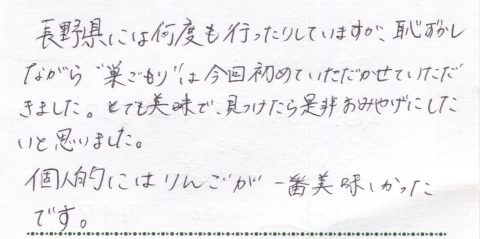 長野県には何度も行ったりしていますが、恥ずかし
ながら"巣ごもり"は今回初めていただかせていただ
きました。とても美味で、見つけたら是非おみやげにした
いと思いました。
個人的にはりんごが一番美味しかった
です。